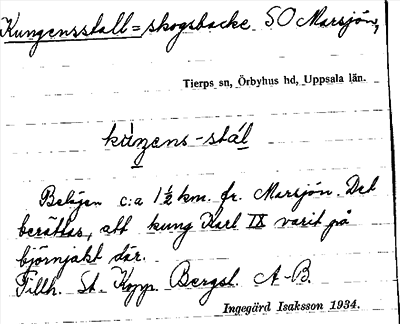 Kungensstall = skogsbacke SO Marsjön,
Tierps sn, Örbyhus hd, Uppsala län.
kuŋens-stál
Belägen c:a 1½ km. fr. Marsjön. Det
berättas, att kung Karl IX varit på
björnjakt där.
Tillh. St. Kopp. Bergsl. A-B.
Ingegärd Isaksson 1934.